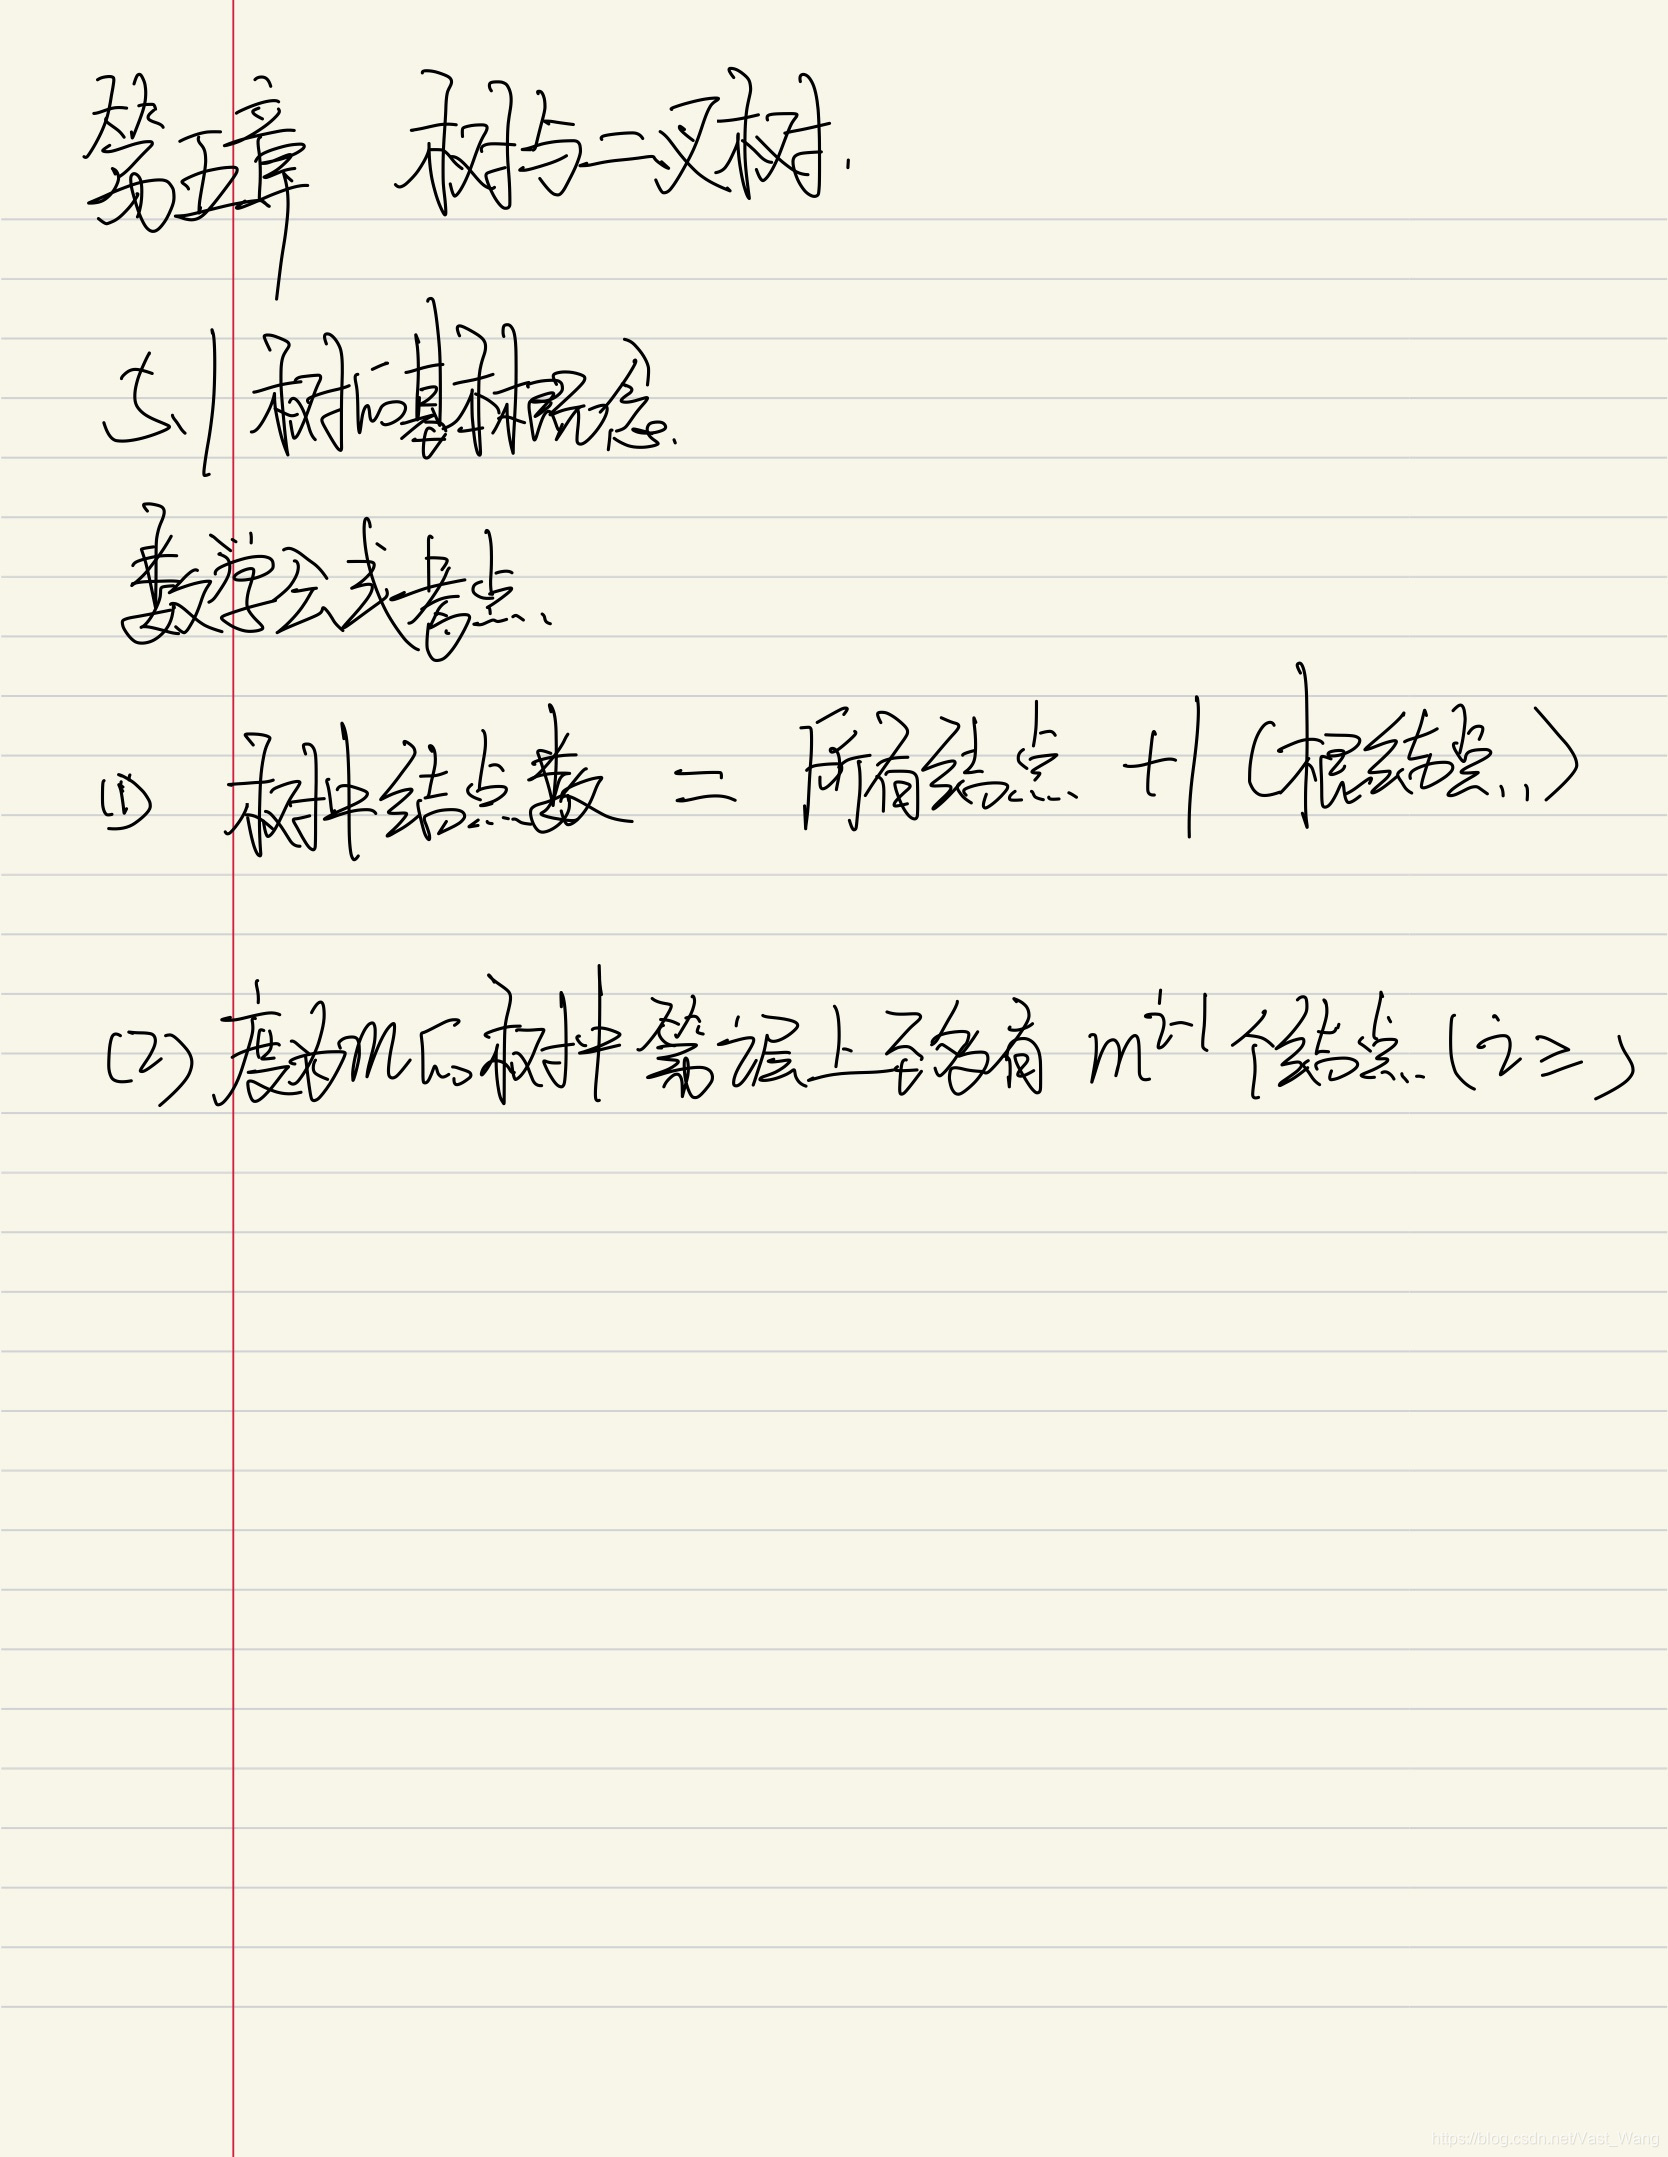 第五章 树与二叉树.
5.1 树的基本概念.
数学公式考点.
(1) 树中结点数 = 所有结点 +1 (根结点)
(2) 度为m的树中第i层上至多有 m^{i-1}个结点 (i≥)
https://blog.csdn.net/Vast_Wang